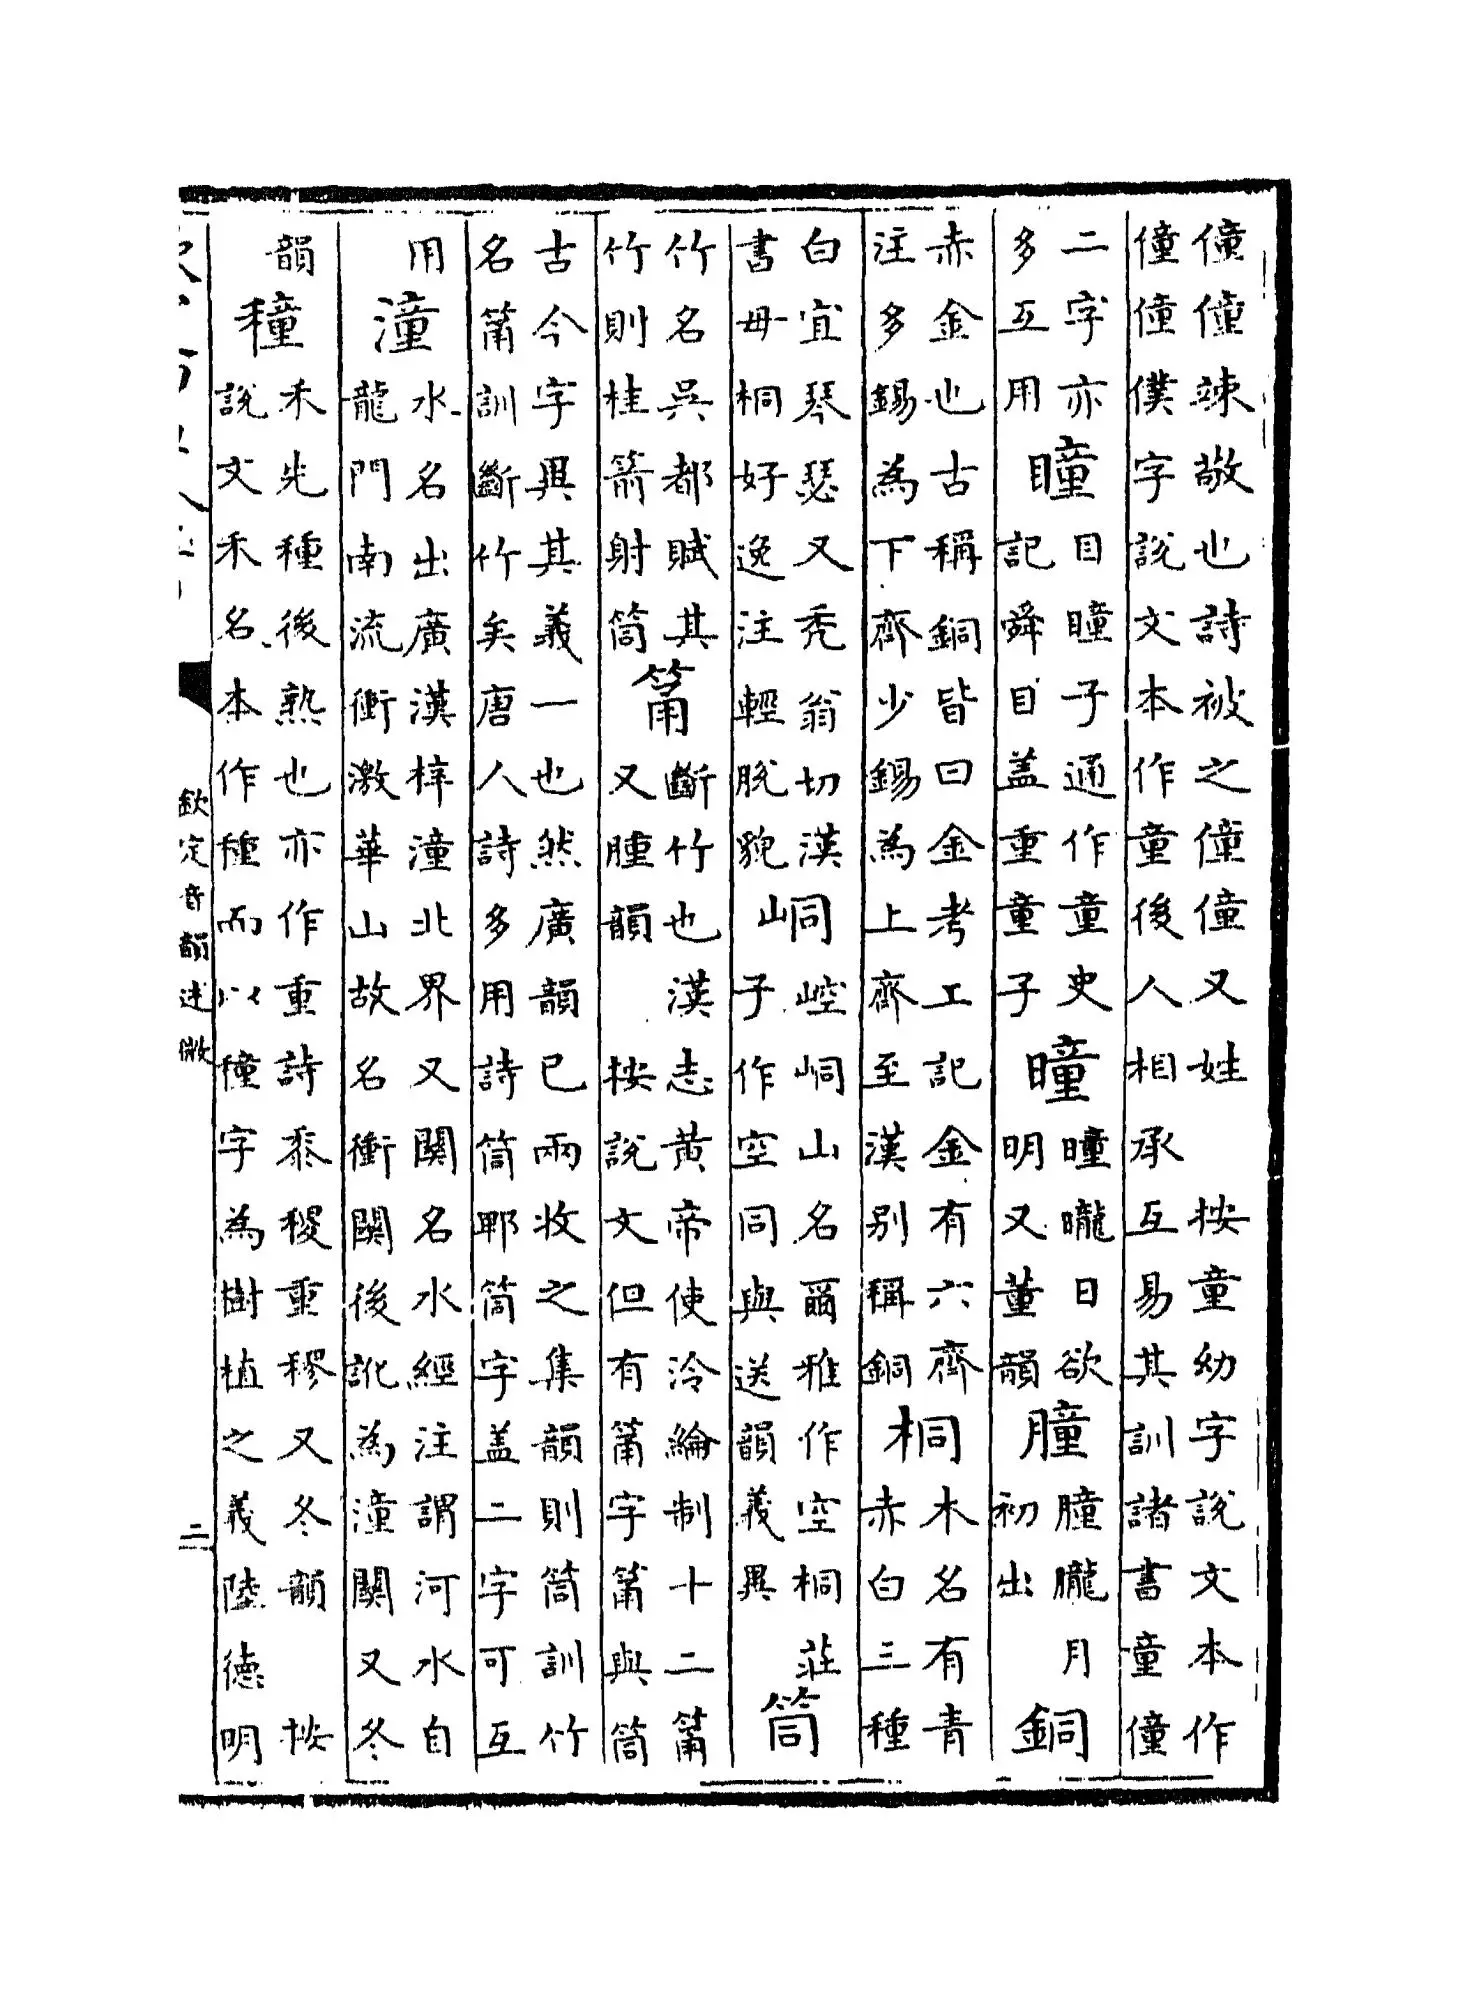 僮僮竦敬也詩被之僮僮又姓　按童幼字說文本作
僮僮僕字說文本作童後人相承互易其訓諸書童僮
二字亦
多互用
瞳
目瞳子通作童史
記舜目盖重童子
曈
曈曨日欲
明又董韻
朣
朣朧月
初出
銅
赤金也古稱銅皆曰金考工記金有六齊
注多錫為下齊少錫為上齊至漢别稱銅
桐
木名有青
赤白三種
白宜琴瑟又禿翁切漢
書毋桐好逸注輕脫貌
峒
崆峒山名爾雅作空桐莊
子作空同與送韻義異
筒
竹名吳都賦其
竹則桂箭射筒
筩
斷竹也　漢志黃帝使泠綸制十二筩
又腫韻　按說文但有筩字筩與筒
古今字異其義一也然廣韻已兩收之集韻則筒訓竹
名筩訓斷竹矣唐人詩多用詩筒郫筒字盖二字可互
用
潼
水名出廣漢梓潼北界又關名水經注謂河水自
龍門南流衝激華山故名衝關後訛為潼關又冬
韻
穜
禾先種後熟也亦作重詩黍稷重穋又冬韻　按
說文禾名本作種而以穜字為樹植之義陸德明
欽定音韻述微
二